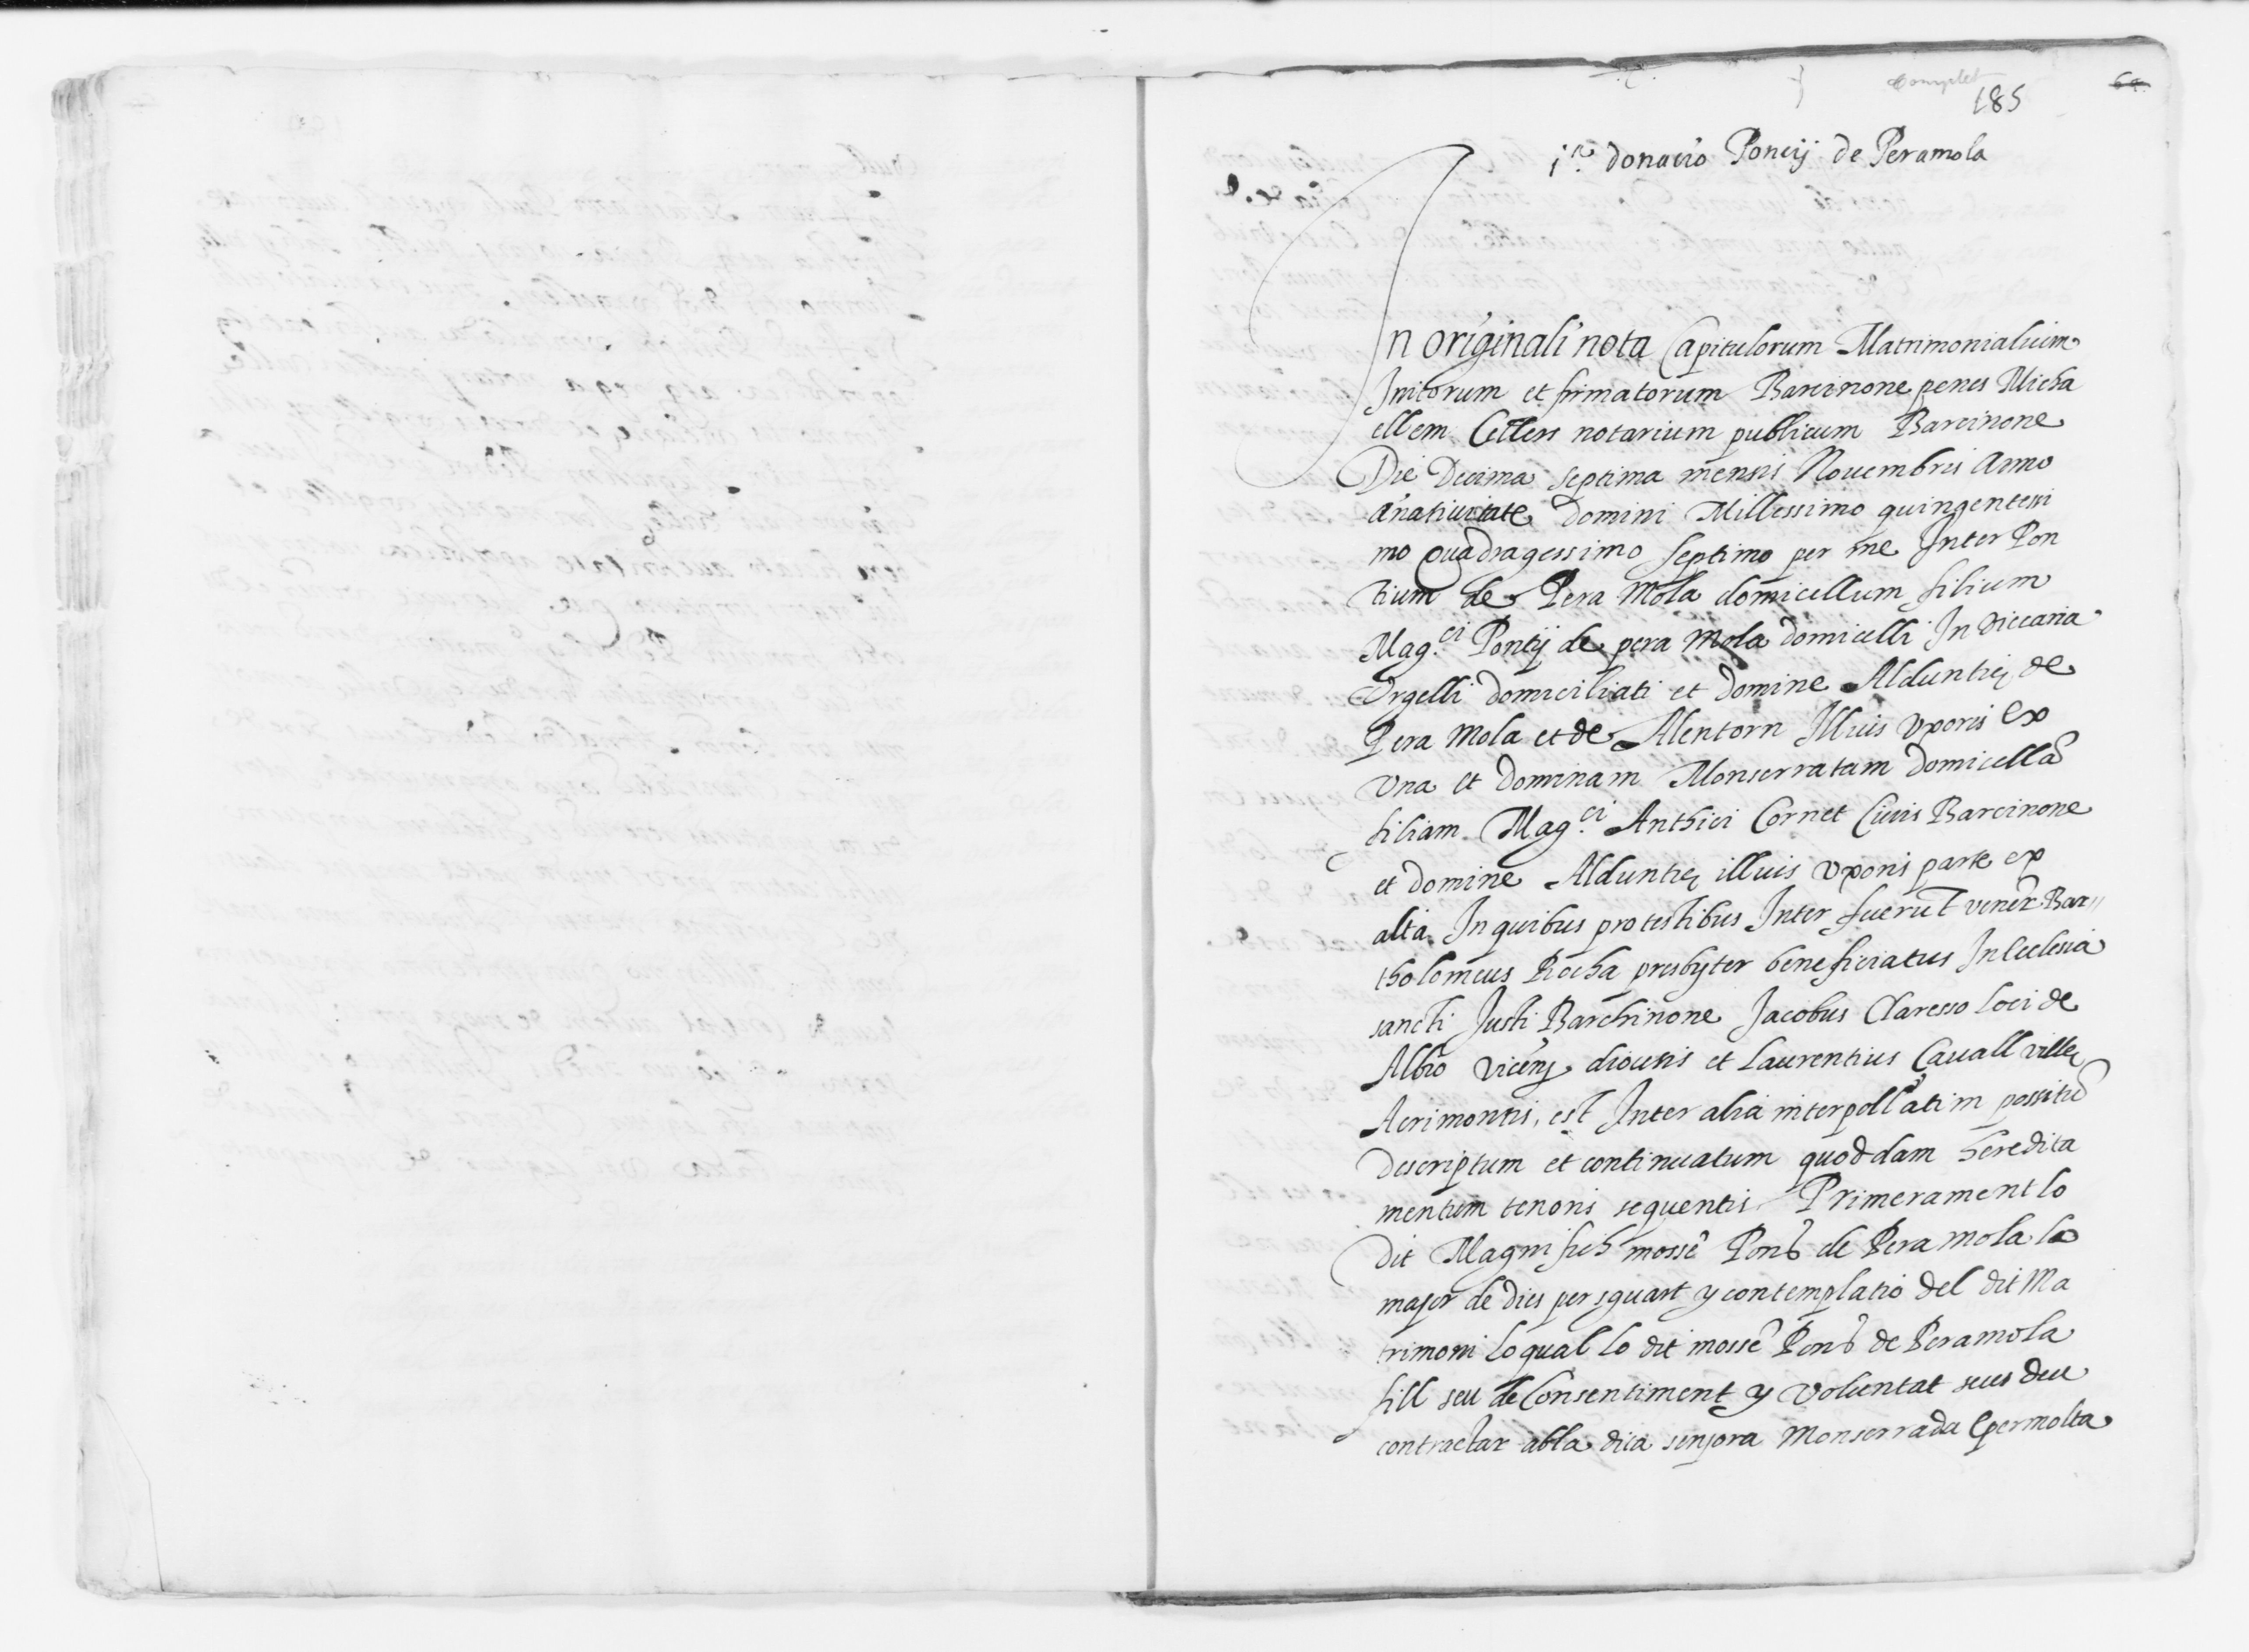 complet
185
jª donacio Poncij de Peramola
In originali nota Capitulorum Matrimonialium
Initorum et firmatorum Barcinone penes Micha
ellem Cellers notarium publicum Barcinone
Die Decima septima mensis Nouembris Anno
anatiuitate Domini Millessimo quingentessi
mo quadragessimo septimo per me Inter Pon
tium de Pera Mola domicellum filium
Mag.ci Pontij de pera Mola domicelli In viccaria
Vrgelli domiciliati et Domine Alduntię de
Pera Mola et de Alentorn Illius vxoris ex
vna et Dominam Monserratam Domicellã
filiam Mag.ci Anthici Cornet Ciuis Barcinone
et domine Alduntię illius vxoris parte ex
altã. In quibus protestibus Inter fuerũt vener. Bar
tholomeus Rocha presbyter beneficiatus In Ecclesia
sancti Justi Barchinone Jacobus Claresso loci de
Albio Vicen. diocesis et Laurentius Cauall villę
Acrimontis, est Inter alia interpollatim possitũ
Descriptum et continuatum quoddam heredita
mentum tenoris sequentis Primerament lo
dit Magnifich mossẽ Pons de Pera mola lo
major de dies per sguart y contemplatio del dit Ma
trimoni lo qual lo dit mossẽ Pons de Peramola
fill seu de Consentiment y voluntat sues deu
contractar abla dita senjora Monserrada E per molta